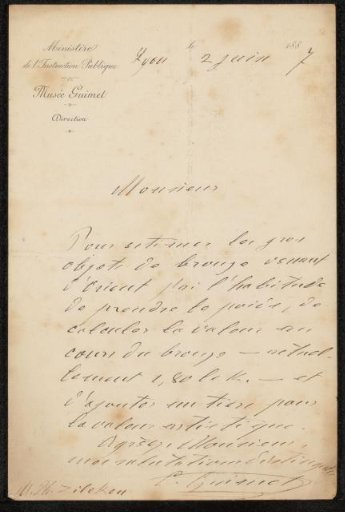 Ministère
de l'Instruction Publique
Musée Guimet
Direction
Lyon le 2 juin 1887
Monsieur
Pour estimer les gros
objets de bronze venant
d'Orient j'ai l'habitude
de prendre le poids, de
calculer la valeur au
cours du bronze — actuel-
lement 1,80 le k. — et
d'ajouter un tiers pour
la valeur artistique.
Agréez Monsieur,
mes salutations distinguées
E. Guimet
M. Ph. Zilcken